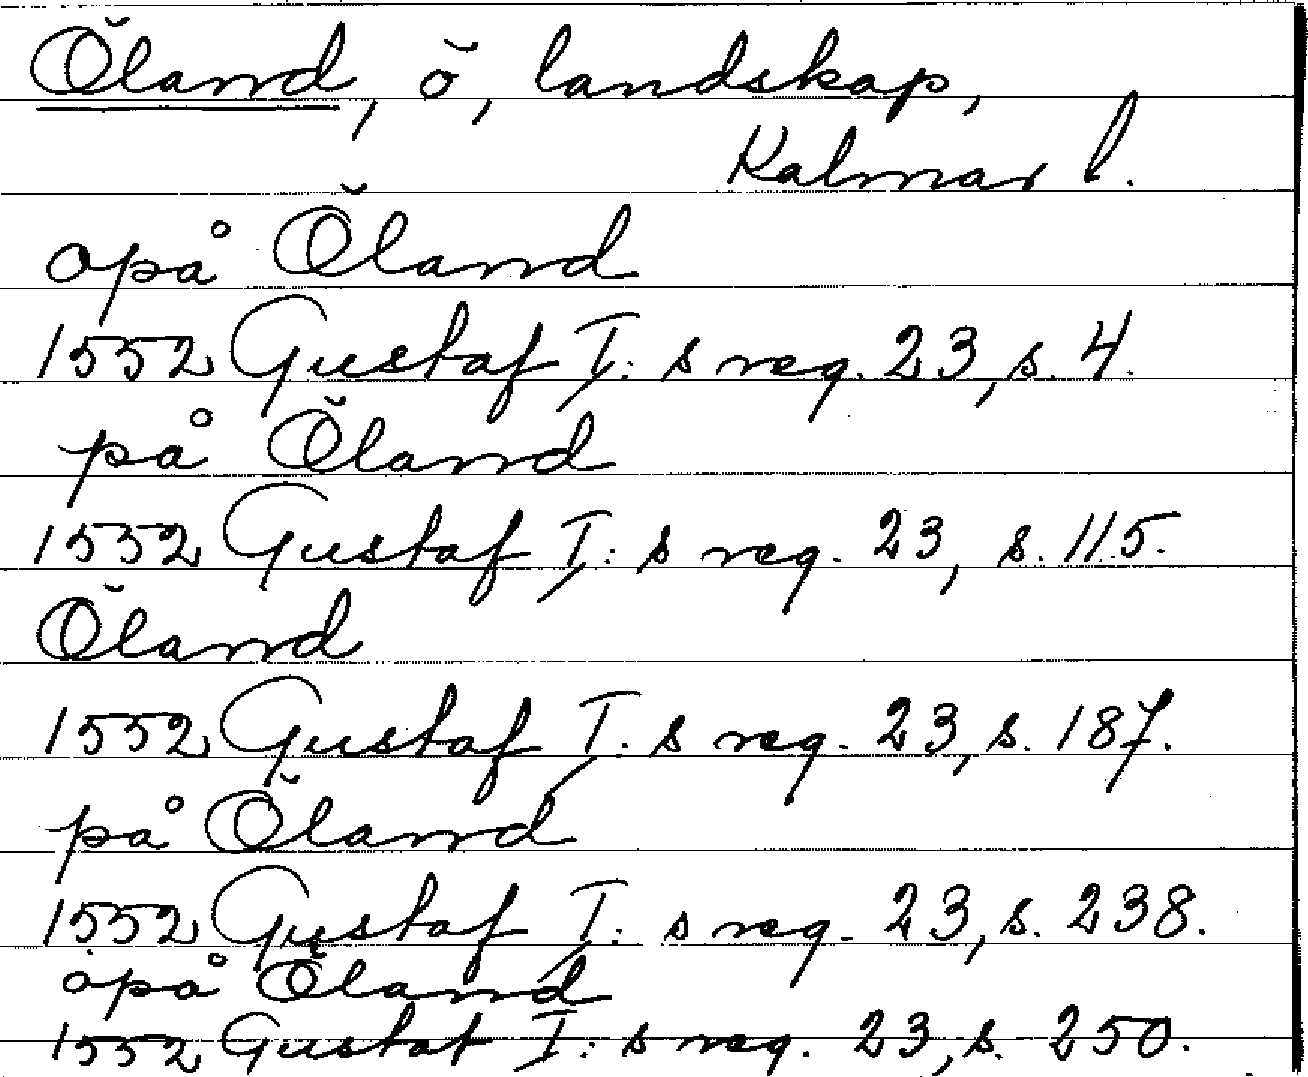 Öland, ö, landskap,
Kalmar l.
opå Öland
1552 Gustaf I:s reg. 23, s. 4.
på Öland
1552 Gustaf I:s reg. 23, s. 115.
Öland
1552 Gustaf I:s reg. 23, s. 187.
på Öland
1552 Gustaf I:s reg. 23, s. 238.
opå Öland
1552 Gustaf I:s reg. 23, s. 250.